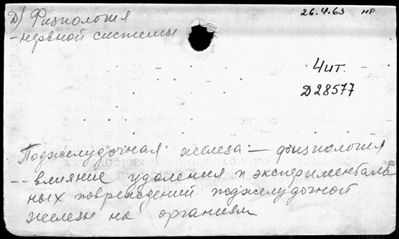 Д) Физиология
26.4.63 НР
- нервной системы
4 ит.
D28577
Поджелудочная железа — физиология
-- влияние удаления и эксперименталь
ных повреждений поджелудочной
железы на организм